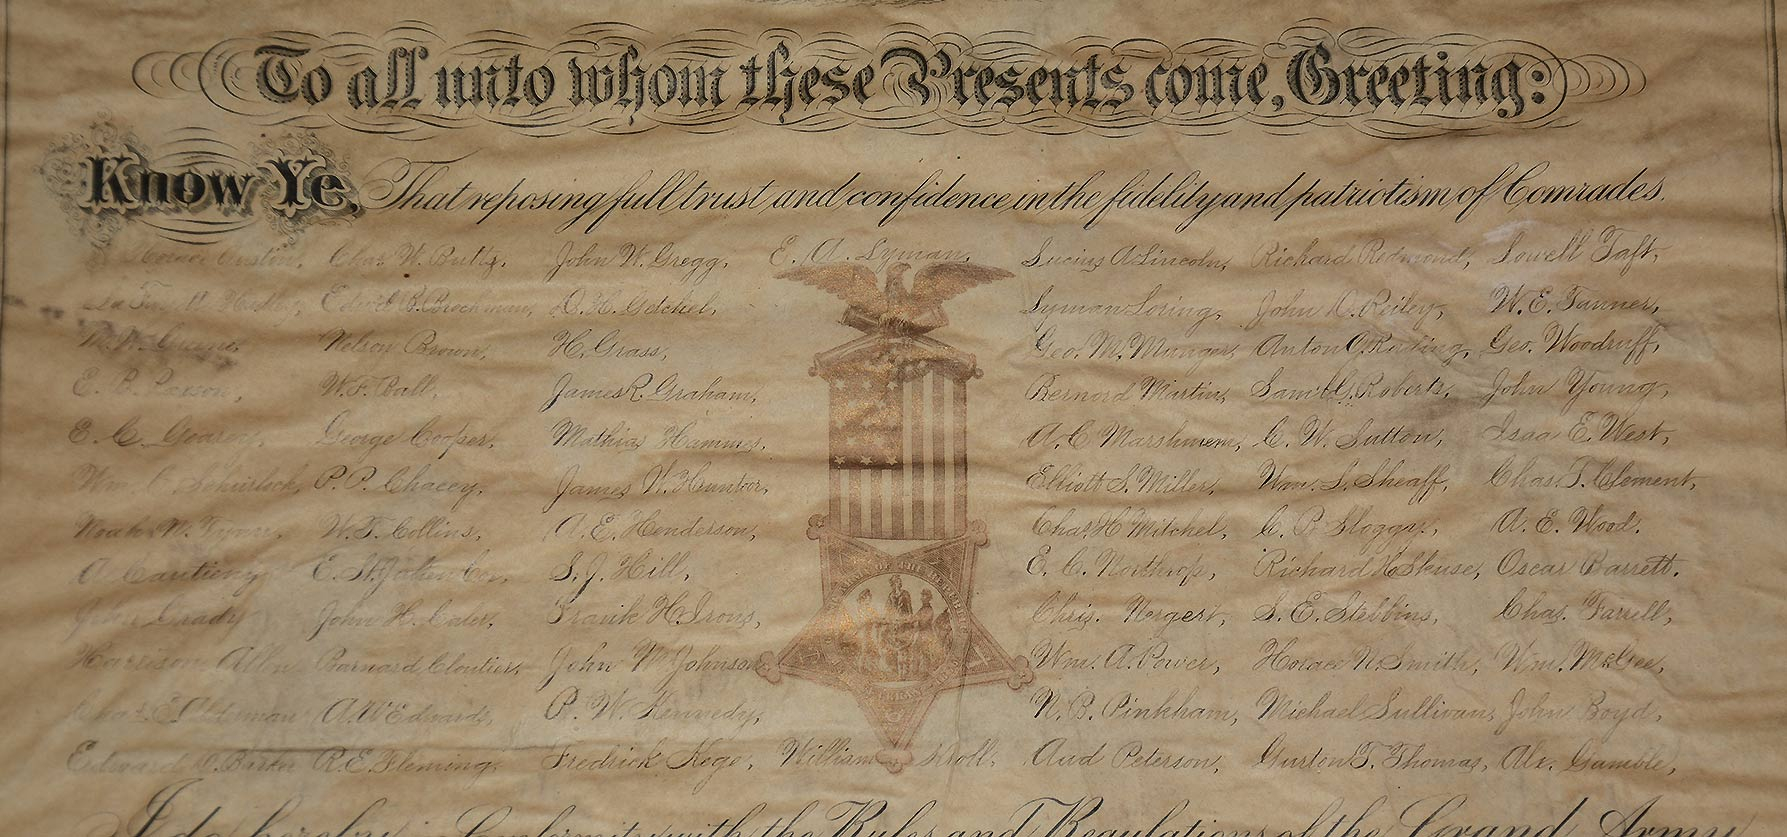 To all unto whom these Presents come, Greeting:
Know Ye, That reposing full trust and confidence in the fidelity and patriotism of Comrades.
Horace Austin, Chas. W. Butts, John W. Gregg, E. A. Lyman, Lucius A Lincoln, Richard Redmond, Lowell Taft,
Edwid B. Brockman, O. H. Getchel, Lyman Loring, John D. Reiley, W. E. Tanner,
M. W. Greene, Nelson Brown, H. Grass, Geo. M. Munger, Anton J. Geo. Woodruff,
E. B. W. F. Ball, James R. Graham, Bernord Martin, Saml. G. Roberts, John Young,
E. C. Gearey, George Cooper, Mathias Hammes, A. C. C. W. Sutton, Isaa E. West,
Wm. P. P. Chacey, James W. Elliott S. Miller, Wm. S. Sheaff, Chas. T. Clement,
Noah N. W. T. Collins, A. E. Henderson, Chas. H Mitchel, C. P. Sloggy, A. E. Wood.
A. E. St. Julien Cox, S. J. Hill, E. C. Northrop, Richard H. Skuse, Oscar Barrett.
John Grady John H. Caler, Frank H. Irons, Chris. Nergert, S. E. Stebbins, Chas. Farrell,
Harrison Allen Barnard Cloutier, John M. Johnson Wm. A. Power, Horace N. Smith, Wm. McGee,
Chas. E. A. W Edwards, P. W. Kennedy, N. B. Pinkham, Michael Sullivan, John Boyd,
Edward D. Barker R. E. Fleming, Fredrick Kege, William Kroll, Aud Peterson, Guston T. Thomas, Alx. Gamble,
I do hereby in Conformity with the Rules and Regulations of the Grand Army